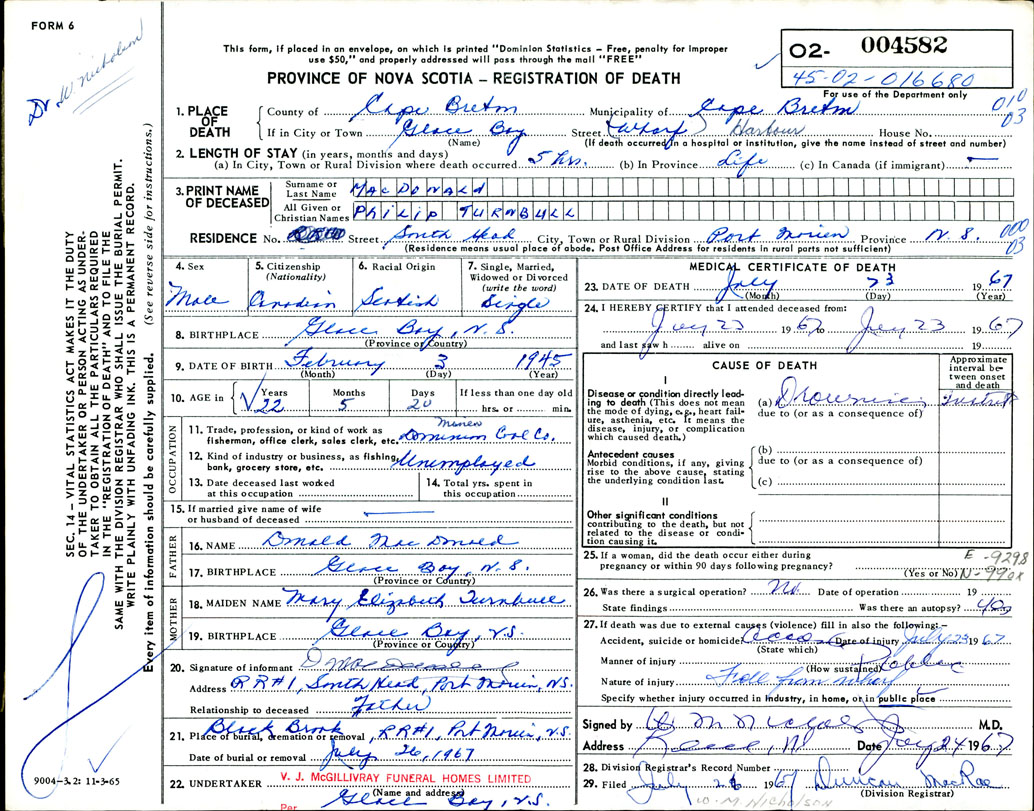 FORM 6
Dr W. Nicholson
This form, if placed in an envelope, on which is printed "Dominion Statistics – Free, penalty for improper
use $50," and properly addressed will pass through the mail "FREE"
PROVINCE OF NOVA SCOTIA – REGISTRATION OF DEATH
02- 004582
45-02-016680
For use of the Department only
010
03
1. PLACE OF DEATH
County of Cape Breton Municipality of Cape Breton
If in City or Town Glace Bay Street (Wharf) Harbour House No.
(Name) (If death occurred in a hospital or institution, give the name instead of street and number)
2. LENGTH OF STAY (in years, months and days)
(a) In City, Town or Rural Division where death occurred 5 hrs. (b) In Province Life (c) In Canada (if immigrant) —
3. PRINT NAME OF DECEASED
Surname or Last Name MACDONALD
All Given or Christian Names PHILIP TURNBULL
RESIDENCE No. Street South Head City, Town or Rural Division Port Morien Province N.S.
000
03
(Residence means usual place of abode. Post Office Address for residents in rural parts not sufficient)
4. Sex Male
5. Citizenship (Nationality) Canadian
6. Racial Origin Scotish
7. Single, Married, Widowed or Divorced (write the word) Single
8. BIRTHPLACE Glace Bay, N.S.
(Province or Country)
9. DATE OF BIRTH February 3 1945
(Month) (Day) (Year)
10. AGE in Years 22 Months 5 Days 20 If less than one day old hrs. or min.
OCCUPATION
11. Trade, profession, or kind of work as fisherman, office clerk, sales clerk, etc. Miner Dominion Coal Co.
12. Kind of industry or business, as fishing, bank, grocery store, etc. Unemployed
13. Date deceased last worked at this occupation
14. Total yrs. spent in this occupation
15. If married give name of wife or husband of deceased —
FATHER
16. NAME Donald MacDonald
17. BIRTHPLACE Glace Bay, N.S.
(Province or Country)
MOTHER
18. MAIDEN NAME Mary Elizabeth Turnbull
19. BIRTHPLACE Glace Bay, N.S.
(Province or Country)
20. Signature of informant
Address RR#1, South Head, Port Morien, NS.
Relationship to deceased Father
21. Black Brook, RR#1, Pt Morien, N.S.
Place of burial, cremation or removal
Date of burial or removal July 26, 1967
22. UNDERTAKER V. J. McGILLIVRAY FUNERAL HOMES LIMITED
(Name and address)
Per Glace Bay, N.S.
MEDICAL CERTIFICATE OF DEATH
23. DATE OF DEATH July 23 1967
(Month) (Day) (Year)
24. I HEREBY CERTIFY that I attended deceased from:
July 23 1967 to July 23 1967
and last saw h alive on 19
CAUSE OF DEATH
Approximate interval between onset and death
I
Disease or condition directly leading to death (This does not mean the mode of dying, e.g., heart failure, asthenia, etc. It means the disease, injury, or complication which caused death.)
(a) Drowning
due to (or as a consequence of)
Antecedent causes
Morbid conditions, if any, giving rise to the above cause, stating the underlying condition last.
(b)
due to (or as a consequence of)
(c)
II
Other significant conditions
contributing to the death, but not related to the disease or condition causing it.
25. If a woman, did the death occur either during pregnancy or within 90 days following pregnancy? (Yes or No)
E-9298
N-990x
26. Was there a surgical operation? No Date of operation 19
State findings Was there an autopsy?
27. If death was due to external causes (violence) fill in also the following:–
Accident, suicide or homicide Date of injury July 23 1967
(State which)
Manner of injury
(How sustained)
Nature of injury Fall from wharf
Specify whether injury occurred in industry, in home, or in public place
Signed by M.D.
Address Date July 24 1967
28. Division Registrar's Record Number
29. Filed July 26 1967 Duncan MacRae
(Division Registrar)
W. M. NICHOLSON
SEC. 14 – VITAL STATISTICS ACT MAKES IT THE DUTY
OF THE UNDERTAKER OR PERSON ACTING AS UNDER-
TAKER TO OBTAIN ALL THE PARTICULARS REQUIRED
IN THE "REGISTRATION OF DEATH" AND TO FILE THE
SAME WITH THE DIVISION REGISTRAR WHO SHALL ISSUE THE BURIAL PERMIT.
WRITE PLAINLY WITH UNFADING INK. THIS IS A PERMANENT RECORD.
Every item of information should be carefully supplied. (See reverse side for instructions.)
9004-3.2: 11-3-65